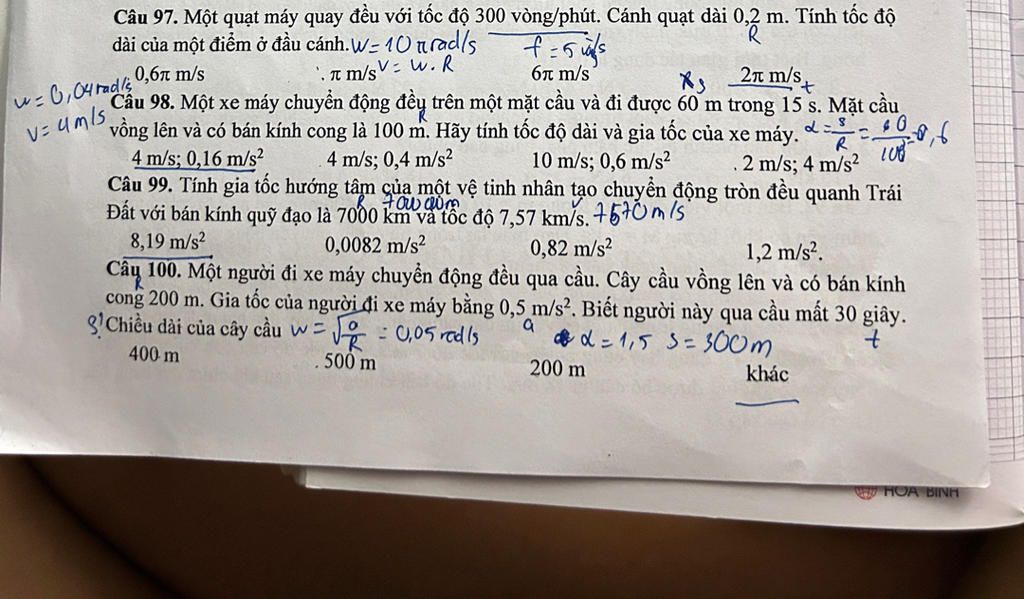 Câu 97. Một quạt máy quay đều với tốc độ 300 vòng/phút. Cánh quạt dài 0,2 m. Tính tốc độ
R
dài của một điểm ở đầu cánh. w = 10π rad/s f = 5
0,6π m/s . π m/s v = w.R 6π m/s 2π m/s
w = 0,04 rad/s
Câu 98. Một xe máy chuyển động đều trên một mặt cầu và đi được 60 m trong 15 s. Mặt cầu
v = 4 m/s
vồng lên và có bán kính cong là 100 m. Hãy tính tốc độ dài và gia tốc của xe máy. α = s/R = 60/100 = 0,6
4 m/s; 0,16 m/s² 4 m/s; 0,4 m/s² 10 m/s; 0,6 m/s² . 2 m/s; 4 m/s²
Câu 99. Tính gia tốc hướng tâm của một vệ tinh nhân tạo chuyển động tròn đều quanh Trái
R 7000 000m v
Đất với bán kính quỹ đạo là 7000 km và tốc độ 7,57 km/s. 7570 m/s
8,19 m/s² 0,0082 m/s² 0,82 m/s² 1,2 m/s².
Câu 100. Một người đi xe máy chuyển động đều qua cầu. Cây cầu vồng lên và có bán kính
R
cong 200 m. Gia tốc của người đi xe máy bằng 0,5 m/s². Biết người này qua cầu mất 30 giây.
a t
S? Chiều dài của cây cầu w = √a/R = 0,05 rad/s α = 1,5 s = 300m
400 m . 500 m 200 m khác
HOA BINH